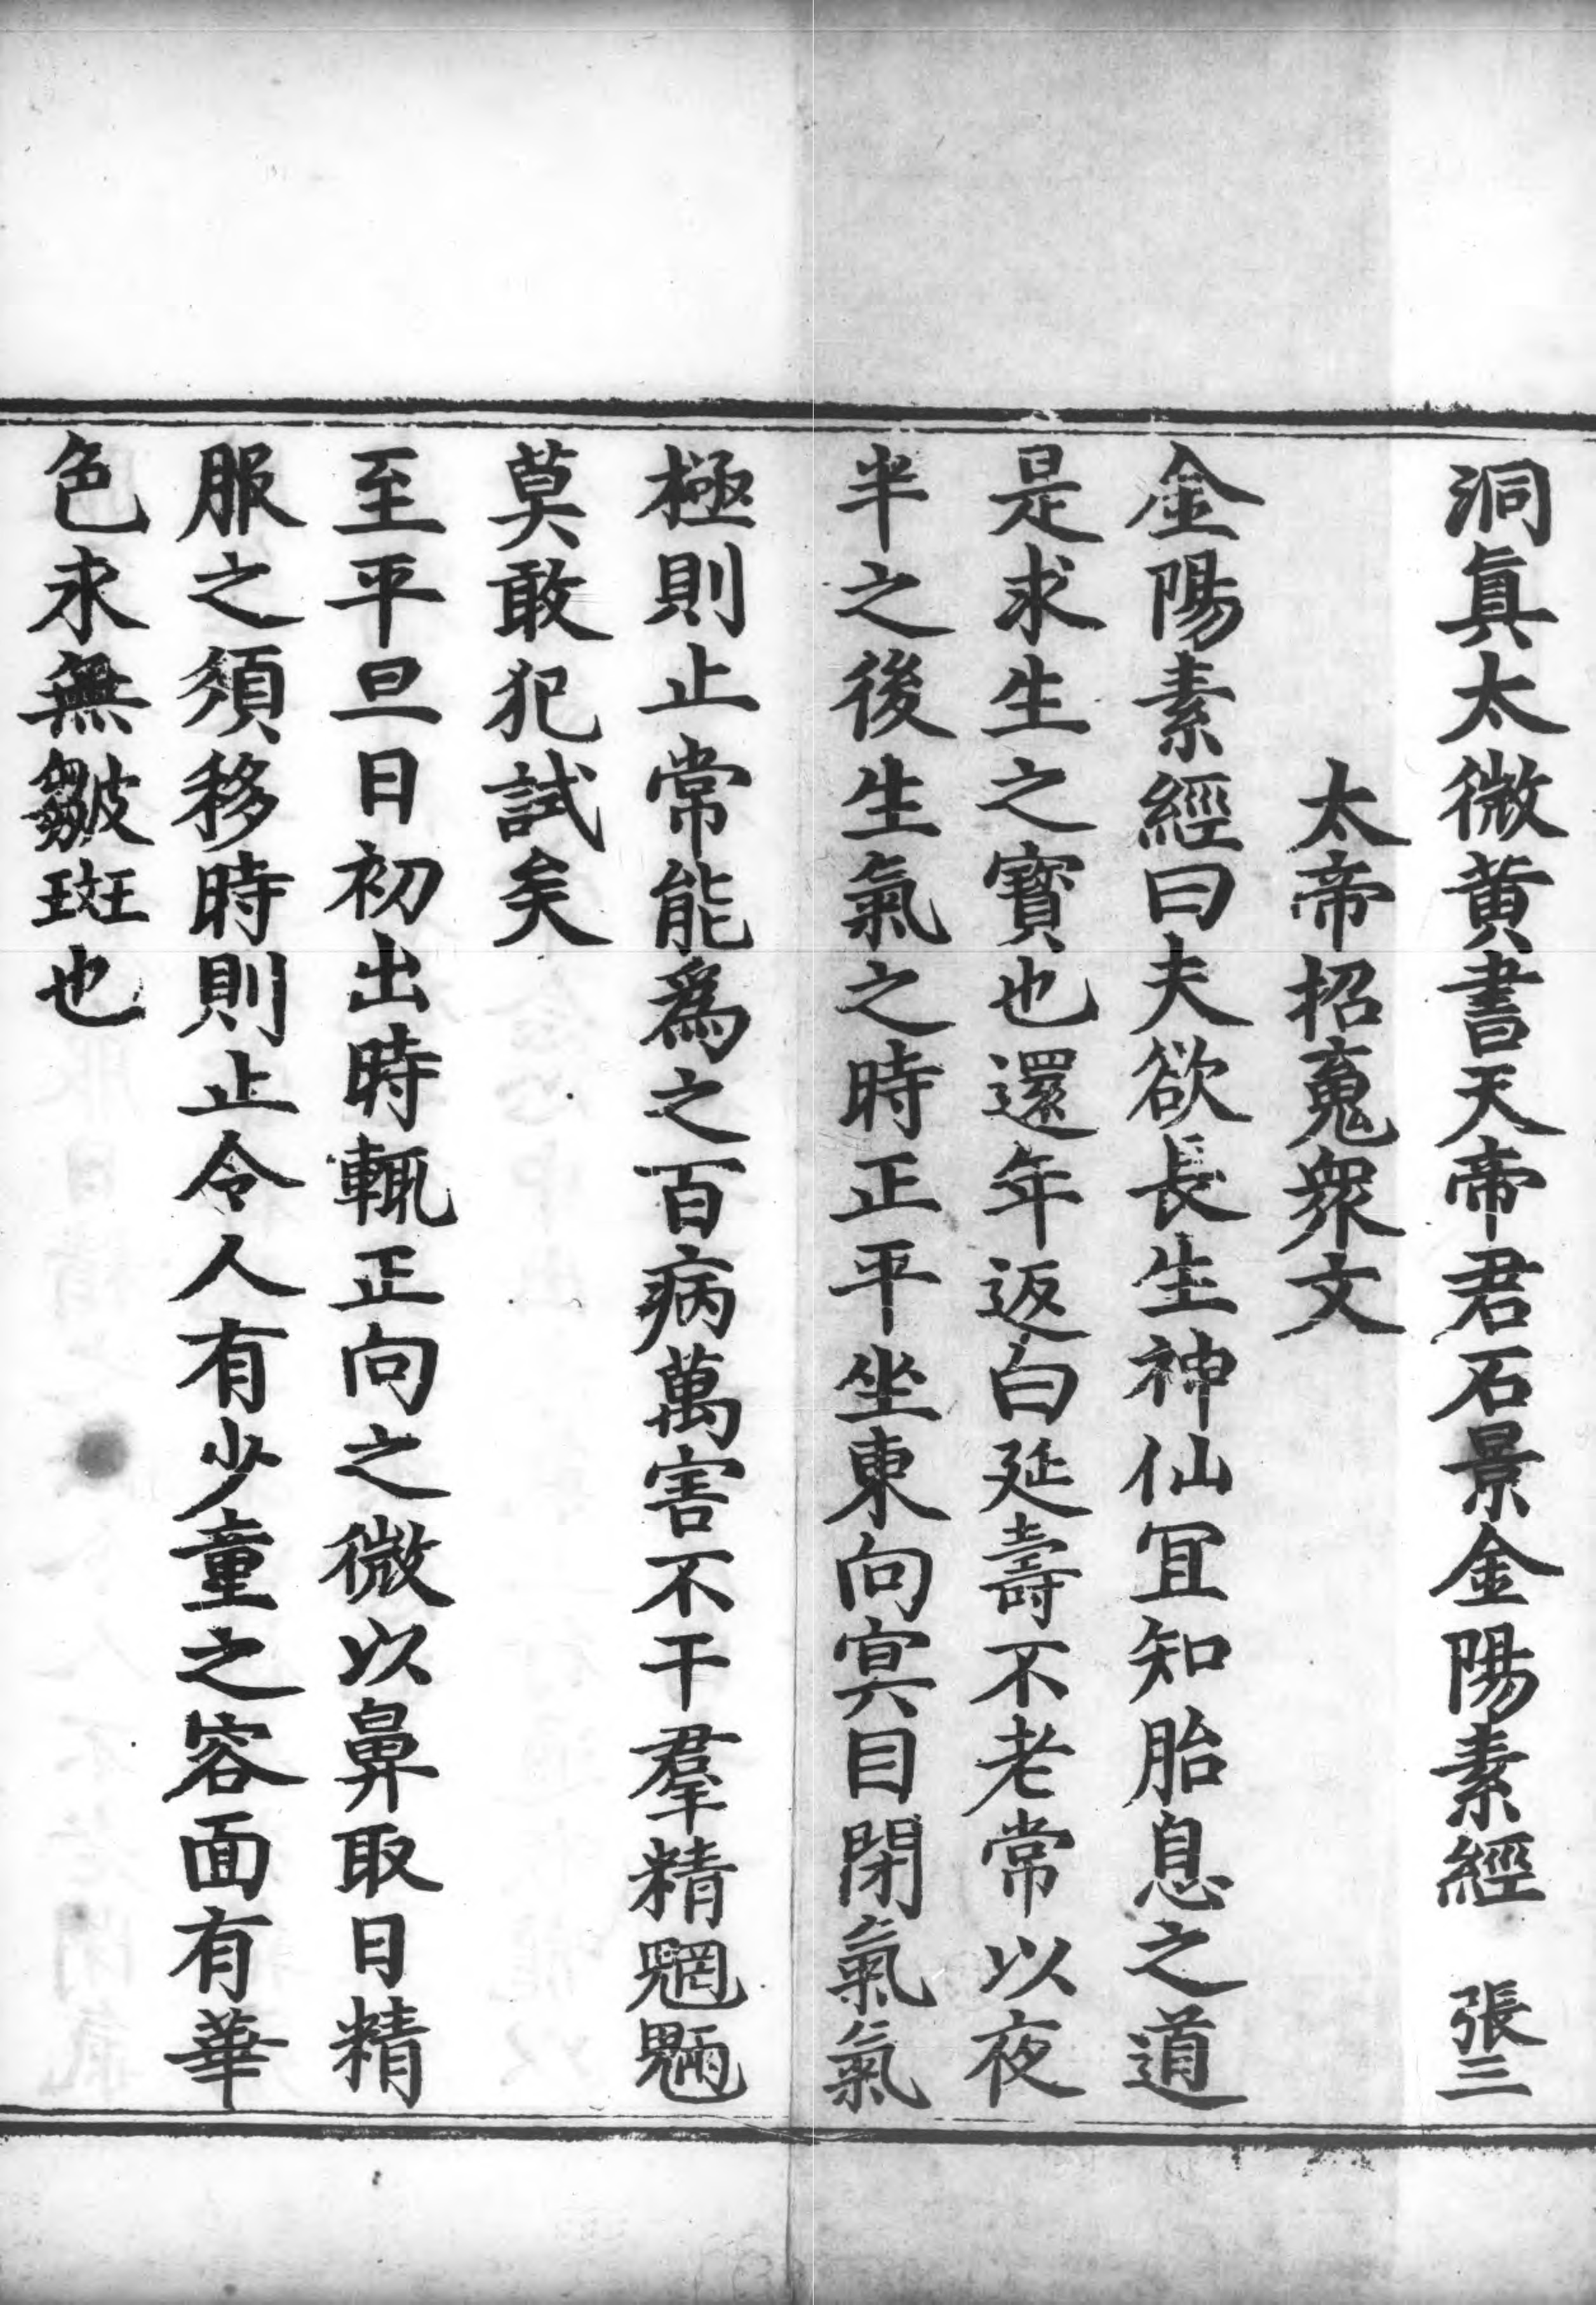 洞眞太微黄書天帝君石景金陽素經　張三
太帝招䰟衆文
金陽素經曰夫欲長生神仙冝知胎息之道
是求生之寳也還年返白延壽不老常以夜
半之後生氣之時正平坐東向寘目閉氣氣
極則止常能爲之百病萬害不干羣精魍魎
莫敢犯試矣
至平旦日初出時輙正向之微以鼻取日精
服之須移時則止令人有少童之容面有華
色永無皺斑也